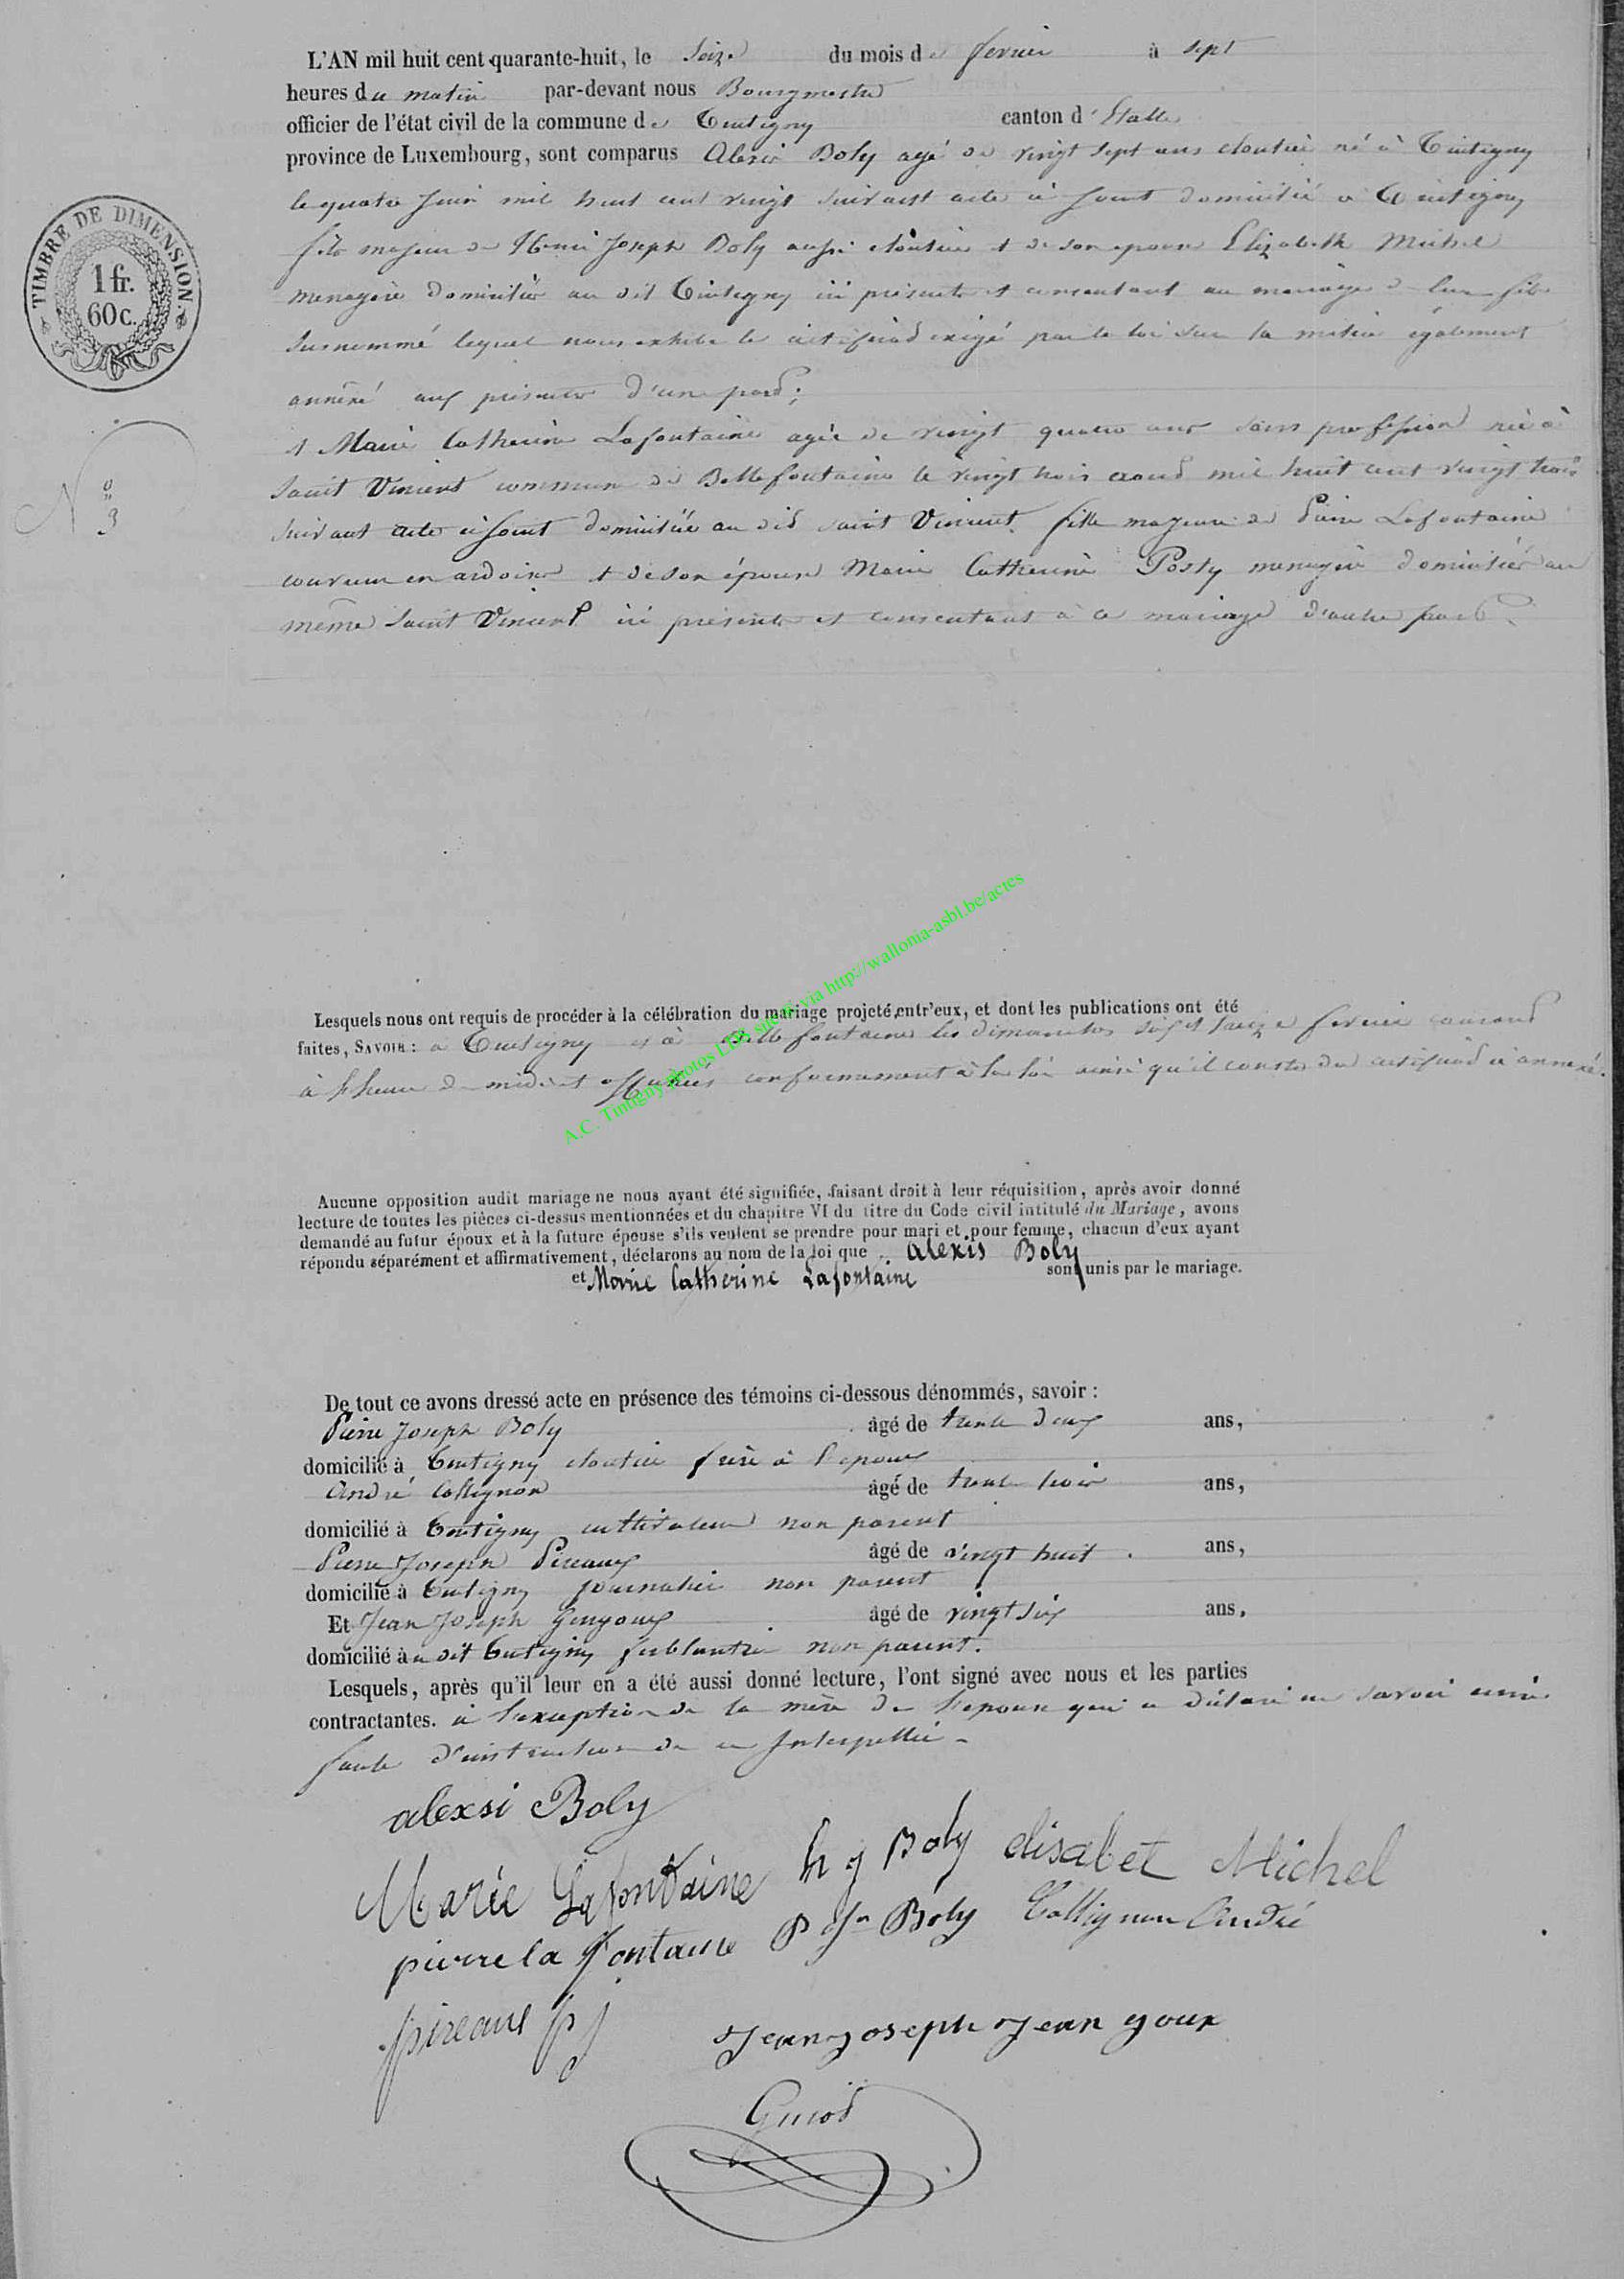 L'AN mil huit cent quarante-huit, le Seize du mois de fevrier à sept
heures du matin par-devant nous Bourgmestre
officier de l'état civil de la commune de Tintigny canton d'Etalle
province de Luxembourg, sont comparus Alexis Boly agé de vingt sept ans cloutier né à Tintigny
le quatre juin mil huit cent vingt suivant acte ci joint domicilié à Tintigny
fils majeur de Henri Joseph Boly aussi cloutier et de son epouse Elizabeth Michel
menagère domiciliés au dit Tintigny ici présents et consentant au mariage de leur fils
susnommé lequel nous exhibe le certificat exigé par la loi sur la milice également
annexé aux présentes d'une part;
TIMBRE DE DIMENSION.
1 fr.
60 c.
N° 3
et Marie Catherine Lafontaine agée de vingt quatre ans sans profession née à
Saint Vincent commune de Bellefontaine le vingt trois aout mil huit cent vingt trois
suivant acte ci joint domiciliée au dit saint Vincent, fille majeure de Pierre Lafontaine
couvreur en ardoises et de son épouse Marie Catherine Posty menagère domiciliés au
même Saint Vincent ici présents et consentant à ce mariage d'autre part.
Lesquels nous ont requis de procéder à la célébration du mariage projeté entr'eux, et dont les publications ont été
faites, SAVOIR: à Tintigny et à Bellefontaine les dimanches six et treize fevrier courant
à heure de midi et affichées conformement à la loi ainsi qu'il conste du certificat ci annexé.
A.C. Tintigny photos LDS sur via http://wallonia-asbl.be/actes
Aucune opposition audit mariage ne nous ayant été signifiée, faisant droit à leur réquisition, après avoir donné
lecture de toutes les pièces ci-dessus mentionnées et du chapitre VI du titre du Code civil intitulé du Mariage, avons
demandé au futur époux et à la future épouse s'ils veulent se prendre pour mari et pour femme, chacun d'eux ayant
répondu séparément et affirmativement, déclarons au nom de la loi que Alexis Boly
et Marie Catherine Lafontaine sont unis par le mariage.
De tout ce avons dressé acte en présence des témoins ci-dessous dénommés, savoir:
Pierre Joseph Boly âgé de trente deux ans,
domicilié à Tintigny cloutier frère à l'epoux
André Collignon âgé de trente trois ans,
domicilié à Tintigny cultivateur non parent
Pierre Joseph Pireaux âgé de vingt huit ans,
domicilié à Tintigny journalier non parent
Et Jean Joseph Gengoux âgé de vingt six ans,
domicilié au dit Tintigny ferblantier non parent.
Lesquels, après qu'il leur en a été aussi donné lecture, l'ont signé avec nous et les parties
contractantes. à l'exception de la mère de l'epouse qui a déclaré ne savoir ecrire
faute d'instruction de ce Interpellée -
alexsi Boly
Marie Lafontaine h j Boly elisabet Michel
pierre la fontaine P Jh Boly Collignon André
pireaux p j Jean joseph Jean goux
Guiot